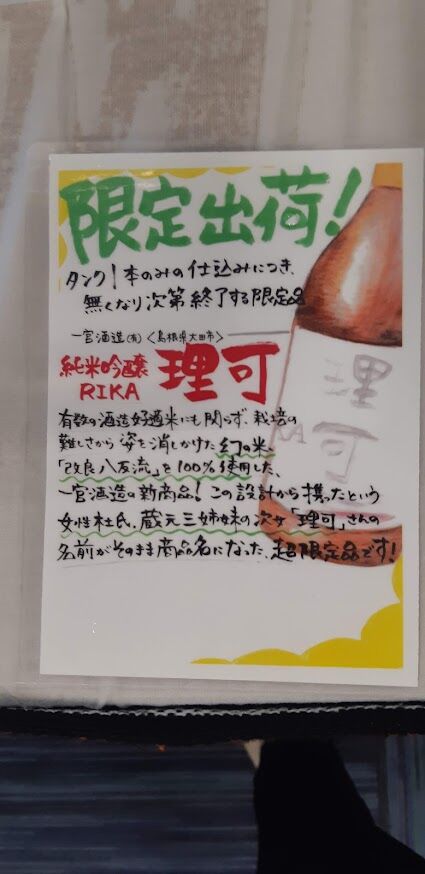 限定出荷!
タンク1本のみの仕込みにつき、
無くなり次第終了する限定品
一宮酒造(有)〈島根県大田市〉
純米吟醸
RIKA
理可
有数の酒造好適米にも関らず、栽培の
難しさから姿を消しかけた幻の米、
「改良八反流」を100%使用した、
一宮酒造の新商品!この設計から携ったという
女性杜氏、蔵元三姉妹の次女「理可」さんの
名前がそのまま商品名になった、超限定品です!
理可